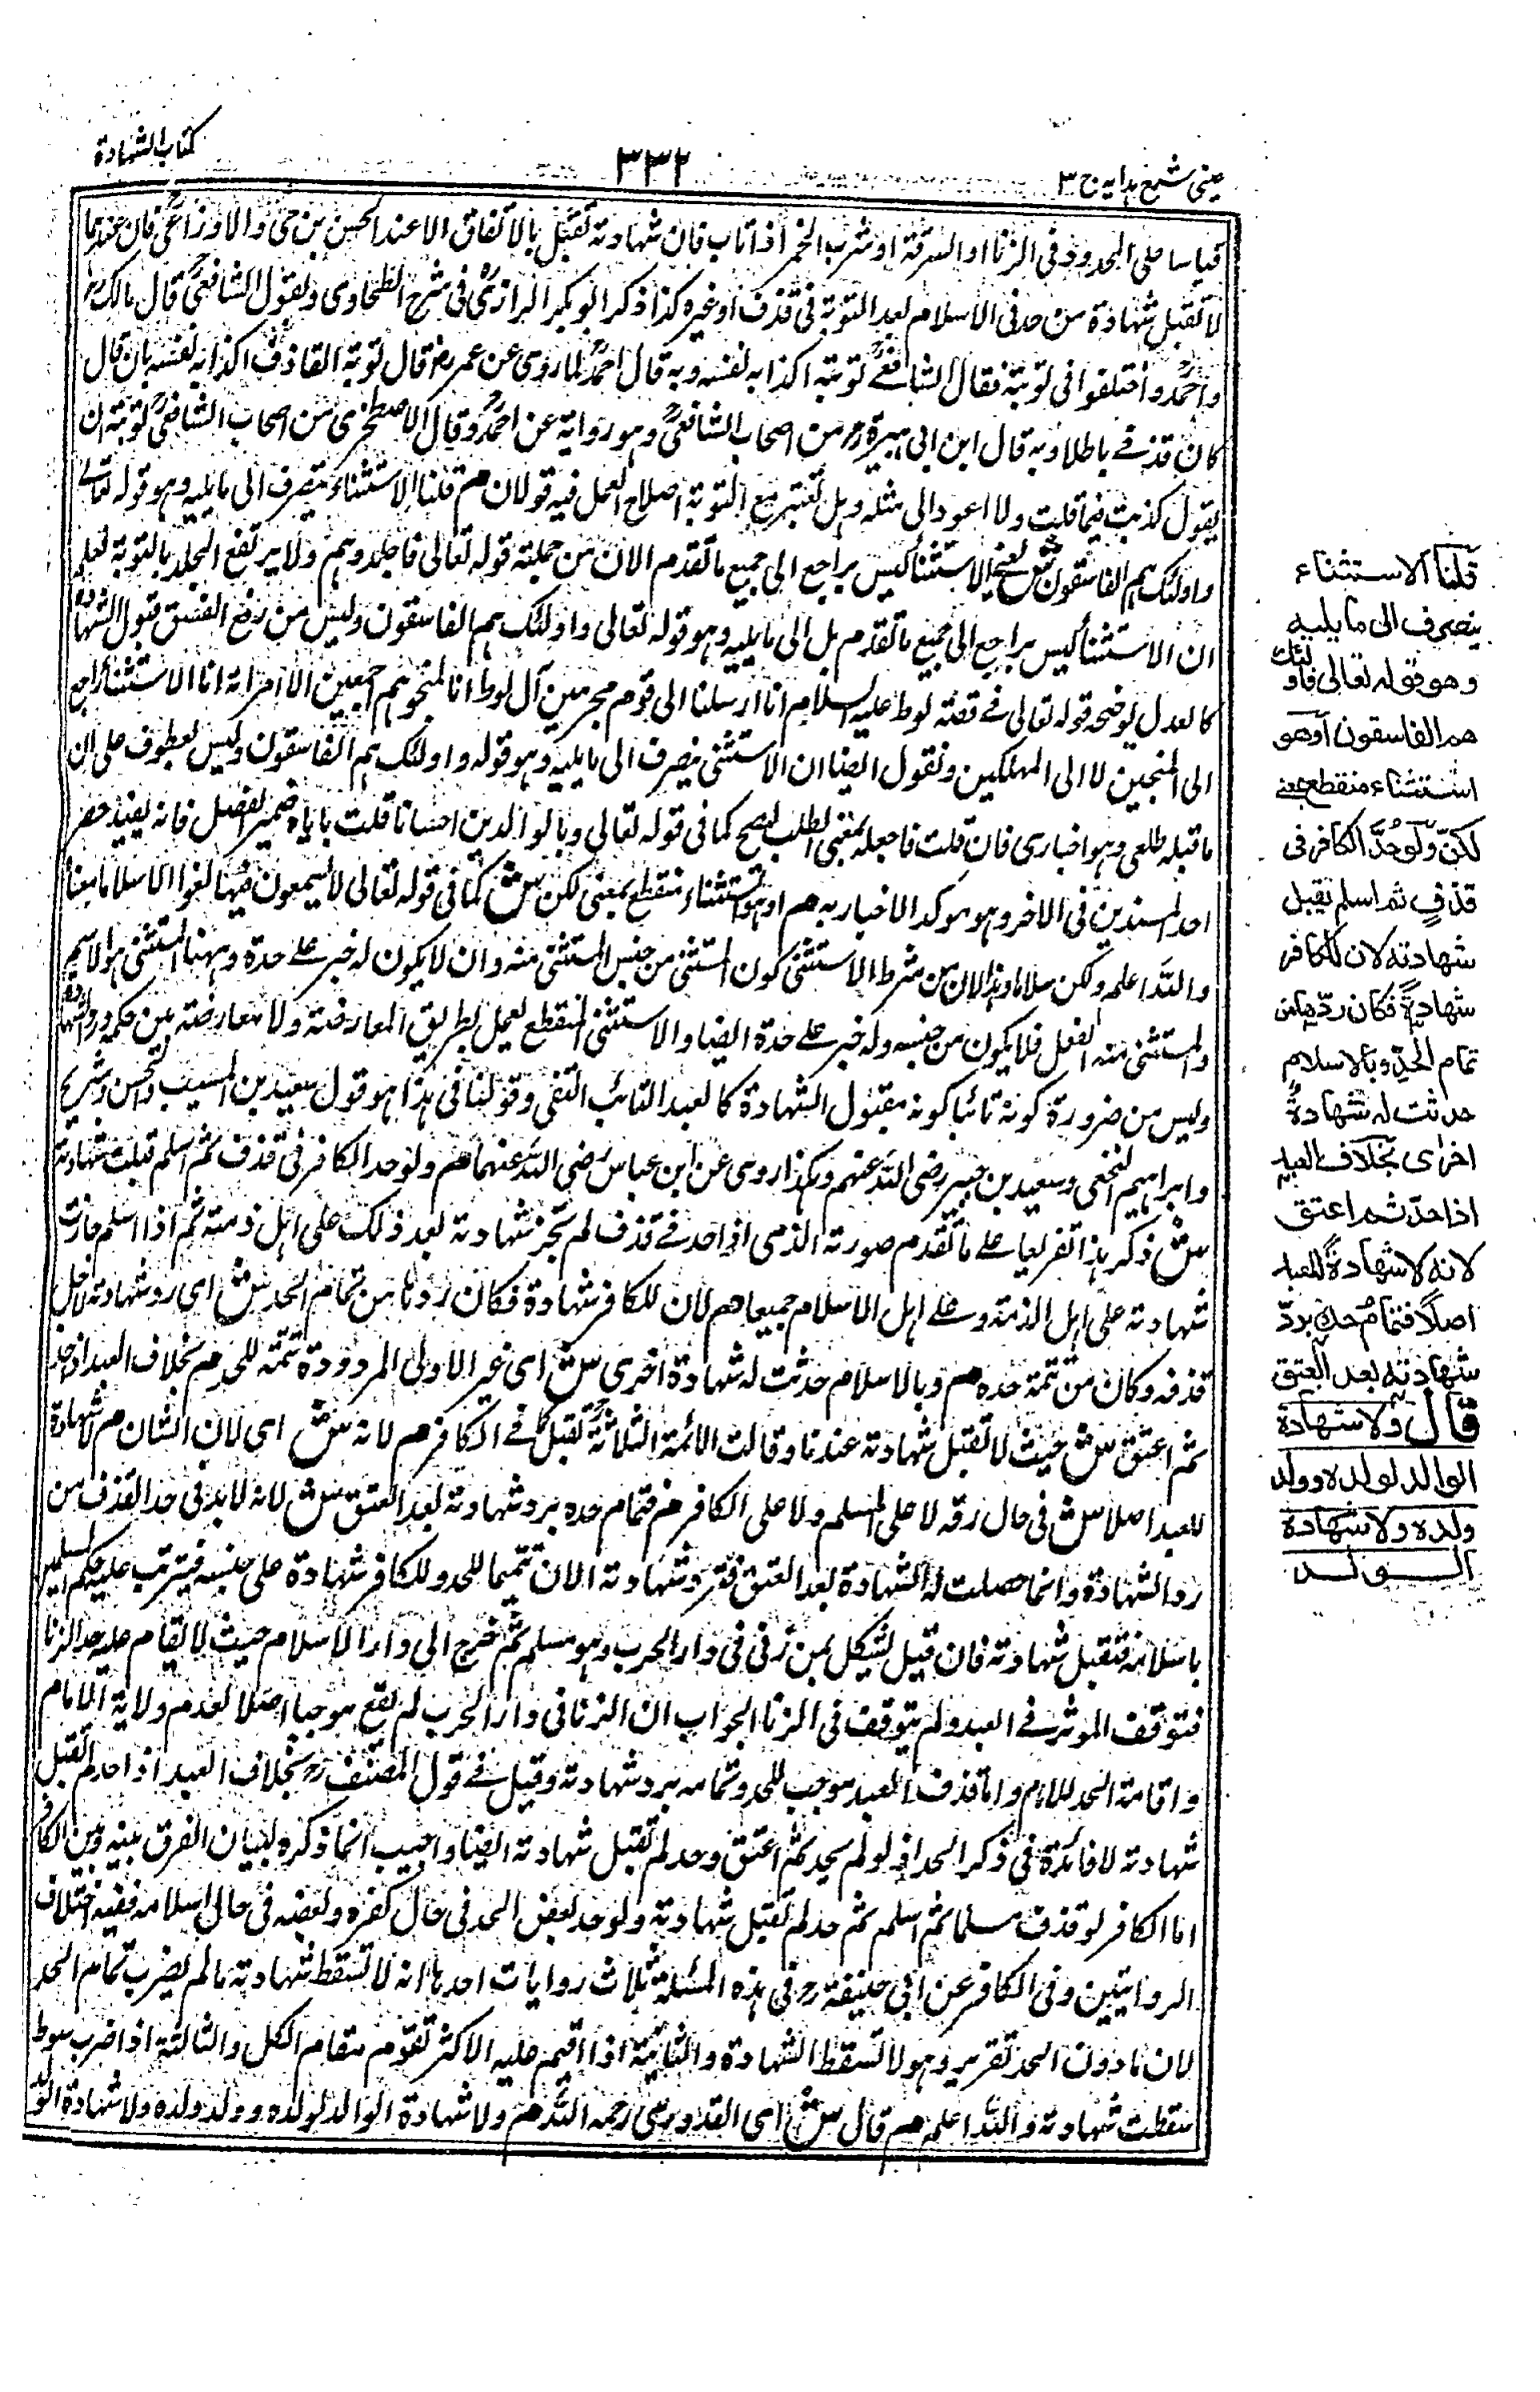 عينى شرح هدايه ج ٣
٣٣٢
كتاب الشهادة
قياسا على المحدود فى الزنا او السرقة او شرب الخمر اذا تاب فان شهادته تقبل بالاتفاق الا عند الحسن بن حى والاوزاعىؒ فان عندهما
لا تقبل شهادة من حد فى الاسلام بعد التوبة فى قذف او غيره كذا ذكر ابو بكر الرازىؒ فى شرح الطحاوى وبقول الشافعىؒ قال مالك رح
واحمدؒ واختلفوا فى توبته فقال الشافعےؒ توبته اكذابه لنفسه وبه قال احمدؒ لما روى عن عمر رض قال توبة القاذف اكذابه نفسه بان قال
كان قذفے باطلا وبه قال ابن ابى هبيرة رح من اصحاب الشافعىؒ وهو رواية عن احمدؒ وقال الاصطخرى من اصحاب الشافعىؒ توبته ان
يقول كذبت فيما قلت ولا اعود الى مثله وهل تعتبر مع التوبة اصلاح العمل فيه قولان هم قلنا الاستثناء ينصرف الى ما يليه وهو قوله تعالے
واولئك هم الفاسقون ش يعنے الاستثنأ ليس براجع الى جميع ما تقدم الان من جملته قوله تعالى فاجلدوهم ولا يرتفع الجلد بالتوبة فعلم
ان الاستثنأ ليس براجع الى جميع ما تقدم بل الى ما يليه وهو قوله تعالى واولئك هم الفاسقون وليس من رفع الفسق قبول الشهادة
كالعدل يوضحه قوله تعالى فے قصة لوط عليه السلام انا ارسلنا الى قوم مجرمين آل لوط انا لمنجوهم اجمعين الا امراته انا الاستثنأ راجع
الى المنجين لا الى المهلكين ونقول ايضا ان الاستثنى ينصرف الى ما يليه وهو قوله واولئك هم الفاسقون وليس بعطوف على ان
ما قبله طلبى وهو اخبارى فان قلت فاجعله بمعنى الطلب ليصح كما فى قوله تعالى وبالوالدين احسانا قلت ياباه ضمير الفصل فانه يفيد حصر
احد المسندين فى الاخر وهو موكد الاخبار به هم او هو استثناء منقطع بمعنى لكن ش كما فى قوله تعالى لا يسمعون فيها لغوا الا سلاما معناه
والله اعلم ولكن سلاما وهذا الان من شرط الاستثنى كون المستثنى من جنس المستثنى منه وان لا يكون له خبر على حدة وههنا المستثنى هو الاسم
والمستثنى منه الفعل فلا يكون من جنسه وله خبر على حدة ايضا والاستثنى المنقطع يعمل بطريق المعارضة ولا معارضة بين حكمه ورد الشهادة
وليس من ضرورة كونه تائبا كونه مقبول الشهادة كالعبد التائب التقى وقولنا فى هذا هو قول سعيد بن المسيب والحسن وشريح
وابراهيم النخعى وسعيد بن جبير رضى الله عنهم وهكذا روى عن ابن عباس رضى الله عنهما هم ولو حد الكافر فى قذف ثم اسلم قبلت شهادته
ش ذكر هذا تفريعا على ما تقدم صورته الذمى اذا حد فے قذف لم تجز شهادته بعد ذلك على اهل ذمته ثم اذا اسلم جازت
شهادته على اهل الذمة وعلے اهل الاسلام جميعا هم لان للكافر شهادة فكان ردها من تمام الحد ش اى رد شهادته لاجل
قذفه وكان من تتمة حده هم وبالاسلام حدثت له شهادة اخرى ش اى غير الاولى المردودة تتمة للحد هم بخلاف العبد اذا حد
ثم اعتق ش حيث لا تقبل شهادته عندنا وقالت الائمة الثلاثةؒ تقبل كما فے الكافر هم لانه ش اى لان الشان هم لا شهادة
للعبد اصلا ش فى حال رقه لا على المسلم ولا على الكافر هم فتمام حده برد شهادته بعد العتق ش لانه لا بد فى حد القذف من
رد الشهادة وانما حصلت له الشهادة بعد العتق فترد شهادته الان تتميما للحد وللكافر شهادة على جنسه فيترتب عليه حكم المسلمين
باسلامه فتقبل شهادته فان قيل يشكل بمن زنى فى دار الحرب وهو مسلم ثم خرج الى دار الاسلام حيث لا يقام عليه حد الزنا
فتوقف الموثر فے العبد ولم يتوقف فى الزنا الجواب ان الزنا فى دار الحرب لم يقع موجبا اصلا لعدم ولاية الامام
واقامة الحد للامام واما قذف العبد موجب للحد وتمامه برد شهادته وقيل فے قول المصنف رح بخلاف العبد اذا حد لم تقبل
شهادته لا فائدة فى ذكر الحد اذ لو لم يحد ثم اعتق وحد لم تقبل شهادته ايضا واجيب انما ذكره لبيان الفرق بينه وبين الكافر
اما الكافر لو قذف مسلما ثم اسلم ثم حد لم تقبل شهادته ولو حد بعض الحد فى حال كفره وبعضه فى حال اسلامه ففيه اختلاف
الروايتين وفى الكافر عن ابى حنيفة رح فى هذه المسئلة ثلاث روايات احدها انه لا تسقط شهادته مالم يضرب تمام الحد
لان ما دون الحد تعزير وهو لا تسقط الشهادة والثانية اذا اقيم عليه الاكثر تقوم مقام الكل والثالثة اذا ضرب سوط
سقطت شهادته والله اعلم هم قال ش اى القدورى رحمه الله هم ولا شهادة الوالد لولده وولد ولده ولا شهادة الولد
قلنا الاستثناء
ينصرف الى ما يليه
وهو قوله تعالى فاولئك
هم الفاسقون أو هو
استثناء منقطع بمعنے
لكنّ ولو حُدَّ الكافر فى
قذفٍ ثم اسلم يقبل
شهادته لان للكافر
شهادةً فكان ردّها من
تمام الحدِّ وبالاسلام
حدثت له شهادةٌ
اخرٰى بخلاف العبد
اذا حدّ ثم اعتق
لانه لا شهادةَ للعبد
اصلاً فتمامُ حدّه بردّ
شهادته بعد العتق
قال ولا شهادة
الوالد لولده وولد
ولده ولا شهادة
الولد